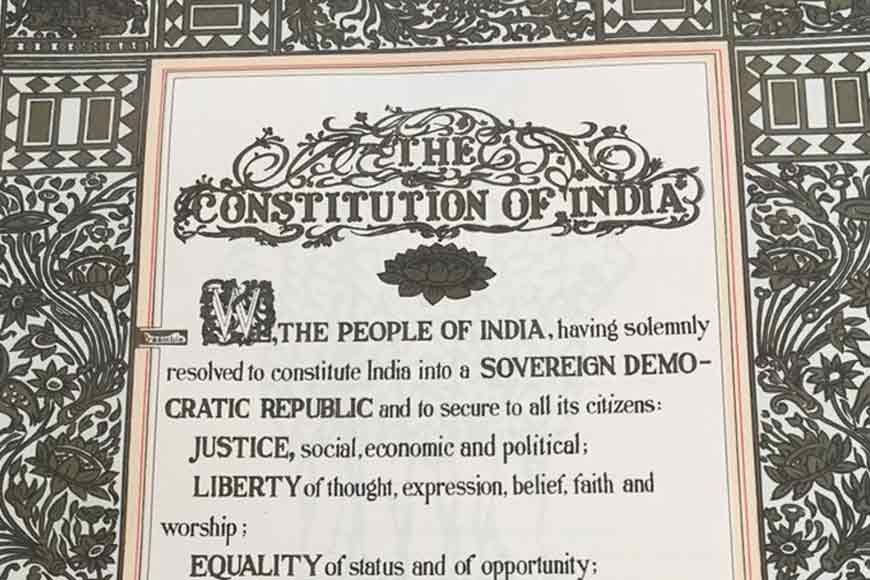 THE
CONSTITUTION OF INDIA
WE, THE PEOPLE OF INDIA, having solemnly
Preamble
resolved to constitute India into a SOVEREIGN DEMO-
CRATIC REPUBLIC and to secure to all its citizens:
JUSTICE, social, economic and political;
LIBERTY of thought, expression, belief, faith and
worship;
EQUALITY of status and of opportunity;